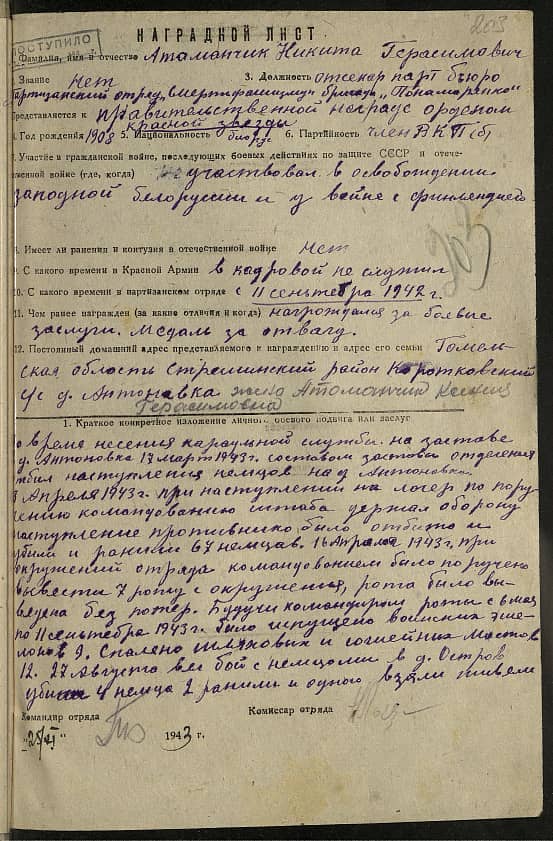 203
ПОСТУПИЛО
НАГРАДНОЙ ЛИСТ
Фамилия, имя и отчество Атаманчик Никита Герасимович
Звание нет 3. Должность отсекар парт бюро
партизанский отряд „Смерть фашизму" бригады „Понамаренко"
представляется к правительственной награде орденом
красной звезды
Год рождения 1908 5. Национальность 6. Партийность член ВКП(б)
7. Участие в гражданской войне, последующих боевых действиях по защите СССР и отече-
ственной войне (где, когда) участвовал в освобождении
западной белоруссии и у войне с финлендией
8. Имеет ли ранения и контузия в отечественной войне Нет
203
9. С какого времени в Красной Армии в кадровой не служил
10. С какого времени в партизанском отряде с 11 сеньтебра 1942 г.
11. Чем ранее награжден (за какие отличия и когда) награждался за боевые
заслуги. Медаль за отвагу.
12. Постоянный домашний адрес представляемого к награждению и адрес его семьи Гомель-
ская область Стрешинский район Коротковский
с/с д. Антоновка жена Атаманчик
Герасимовна
1. Краткое конкретное изложение личного боевого подвига или заслуг
во время несения караульной службы на заставе
д. Антоновка 17 марта 1943 г. составом заставы отделения
отбил наступления немцов на д Антоновка.
Апреля 1943 г. при наступлении на логер по пору-
чению командованию штаба держал оборону
наступление противника было отбито и
убили и ранили 67 немцав. 16 Апреля 1943 г. при
окружений отряда командованием было поручено
вывести 7 роту с окружения, рота было вы-
ведена без потер. Будучи командиром роты с 6 мая
по 11 сеньтебра 1943 г. было спущено воинских эше-
лонов 9. Спалено шляховых и сошейных мостов
12. 27 Августа вел бой с немцоми в д. Остров
убили 4 немца 2 ранили и одного взяли живем
Командир отряда Комиссар отряда
„25/XI" 1943 г.